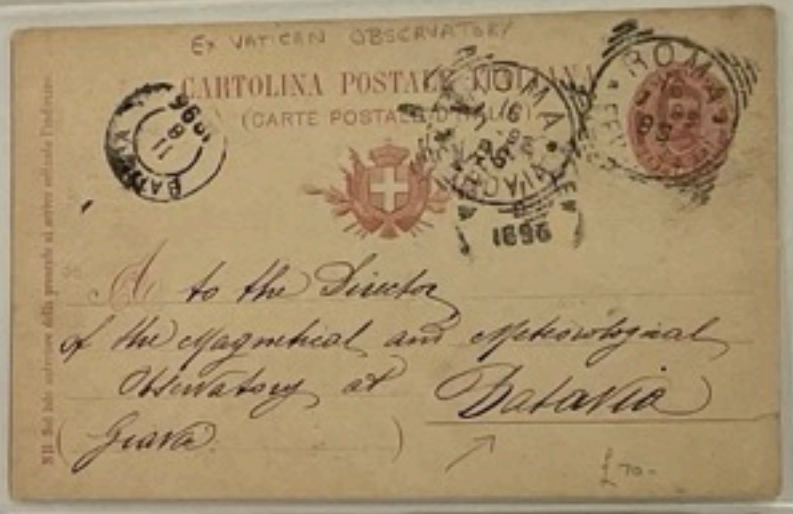 Ex VATICAN OBSERVATORY
CARTOLINA POSTALE ITALIANA
(CARTE POSTALE D'ITALIE)
ROMA
ROMA
1896
11
8
BATAVIA
1896
A to the Director
of the Magnetical and Meteorological
Observatory at Batavia
(Giava )
£70-
NB. Sul lato anteriore della presente si scrive soltanto l'indirizzo